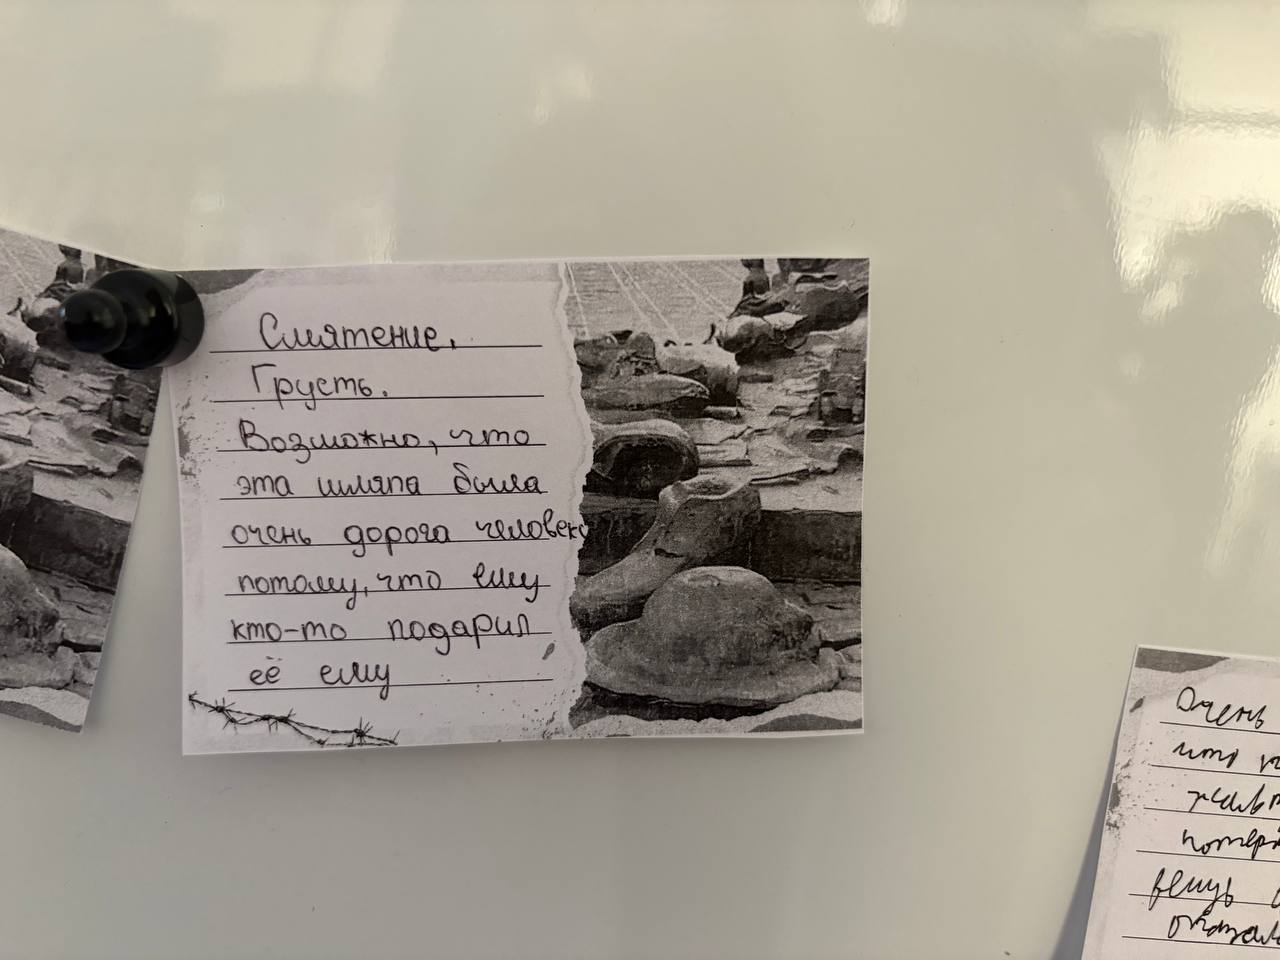 Смятение,
Грусть.
Возможно, что
эта шляпа была
очень дорога человеку
потому, что ему
кто-то подарил
её ему
Очень
что